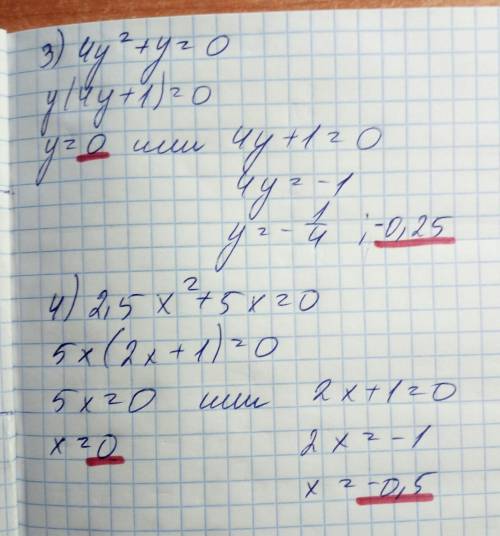 3) 4y²+y=0
y(4y+1)=0
y=0 или 4y+1=0
4y=-1
y=-1/4 ; -0,25
4) 2,5x²+5x=0
5x(2x+1)=0
5x=0 или 2x+1=0
x=0 2x=-1
x=-0,5